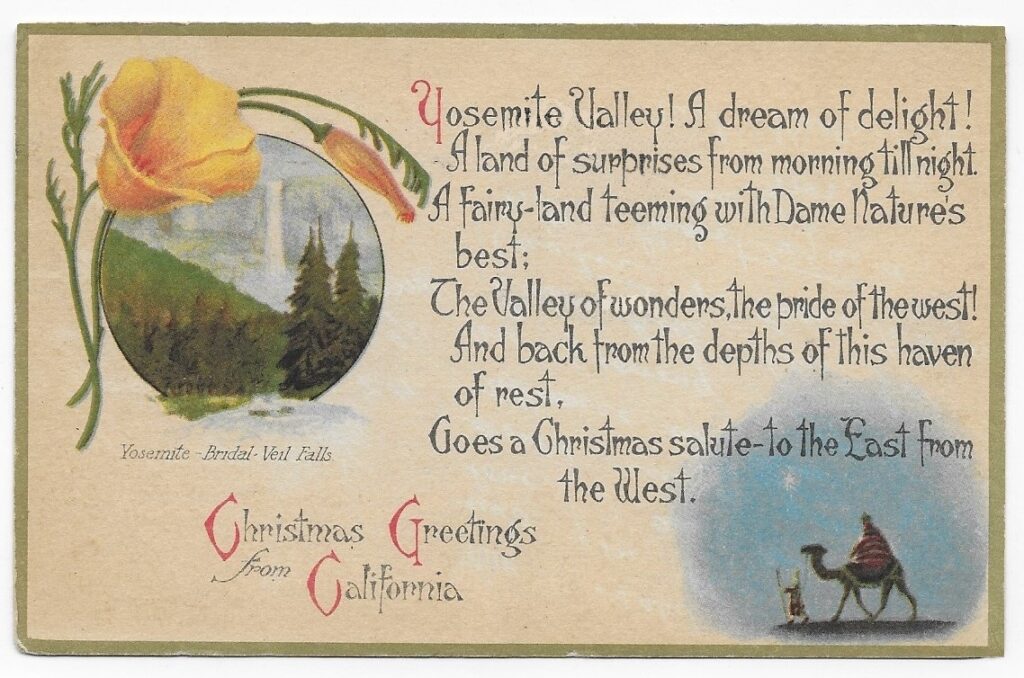 Yosemite Valley! A dream of delight!
A land of surprises from morning till night.
A fairy-land teeming with Dame Nature's
best;
The Valley of wonders, the pride of the west!
And back from the depths of this haven
of rest,
Goes a Christmas salute-to the East from
the West.
Yosemite-Bridal-Veil Falls
Christmas Greetings
from California